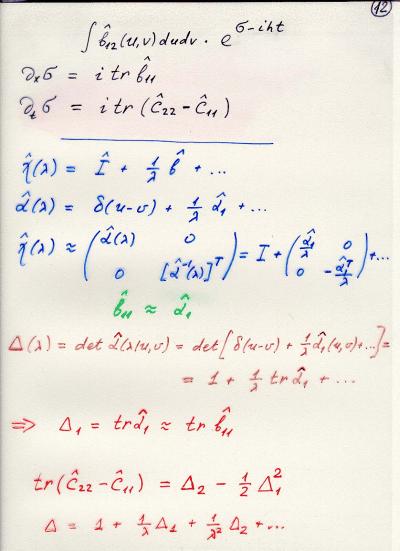 12
∫ b̂₁₂(u,v)dudv · e^{σ-iht}
∂ₓσ = i tr b̂₁₁
∂ₜσ = i tr (Ĉ₂₂ - Ĉ₁₁)
η̂(λ) = Î + 1/λ b̂ + ...
α̂(λ) = δ(u-v) + 1/λ α̂₁ + ...
η̂(λ) ≈ ( α̂(λ) 0 ; 0 [α̂⁻¹(λ)]ᵀ ) = I + ( α̂₁/λ 0 ; 0 -α̂₁ᵀ/λ ) + ...
b̂₁₁ ≈ α̂₁
Δ(λ) = det α̂(λ|u,v) = det[δ(u-v) + 1/λ α̂₁(u,v)+...] =
= 1 + 1/λ tr α̂₁ + ...
⇒ Δ₁ = tr α̂₁ ≈ tr b̂₁₁
tr(Ĉ₂₂ - Ĉ₁₁) = Δ₂ - 1/2 Δ₁²
Δ = 1 + 1/λ Δ₁ + 1/λ² Δ₂ + ...